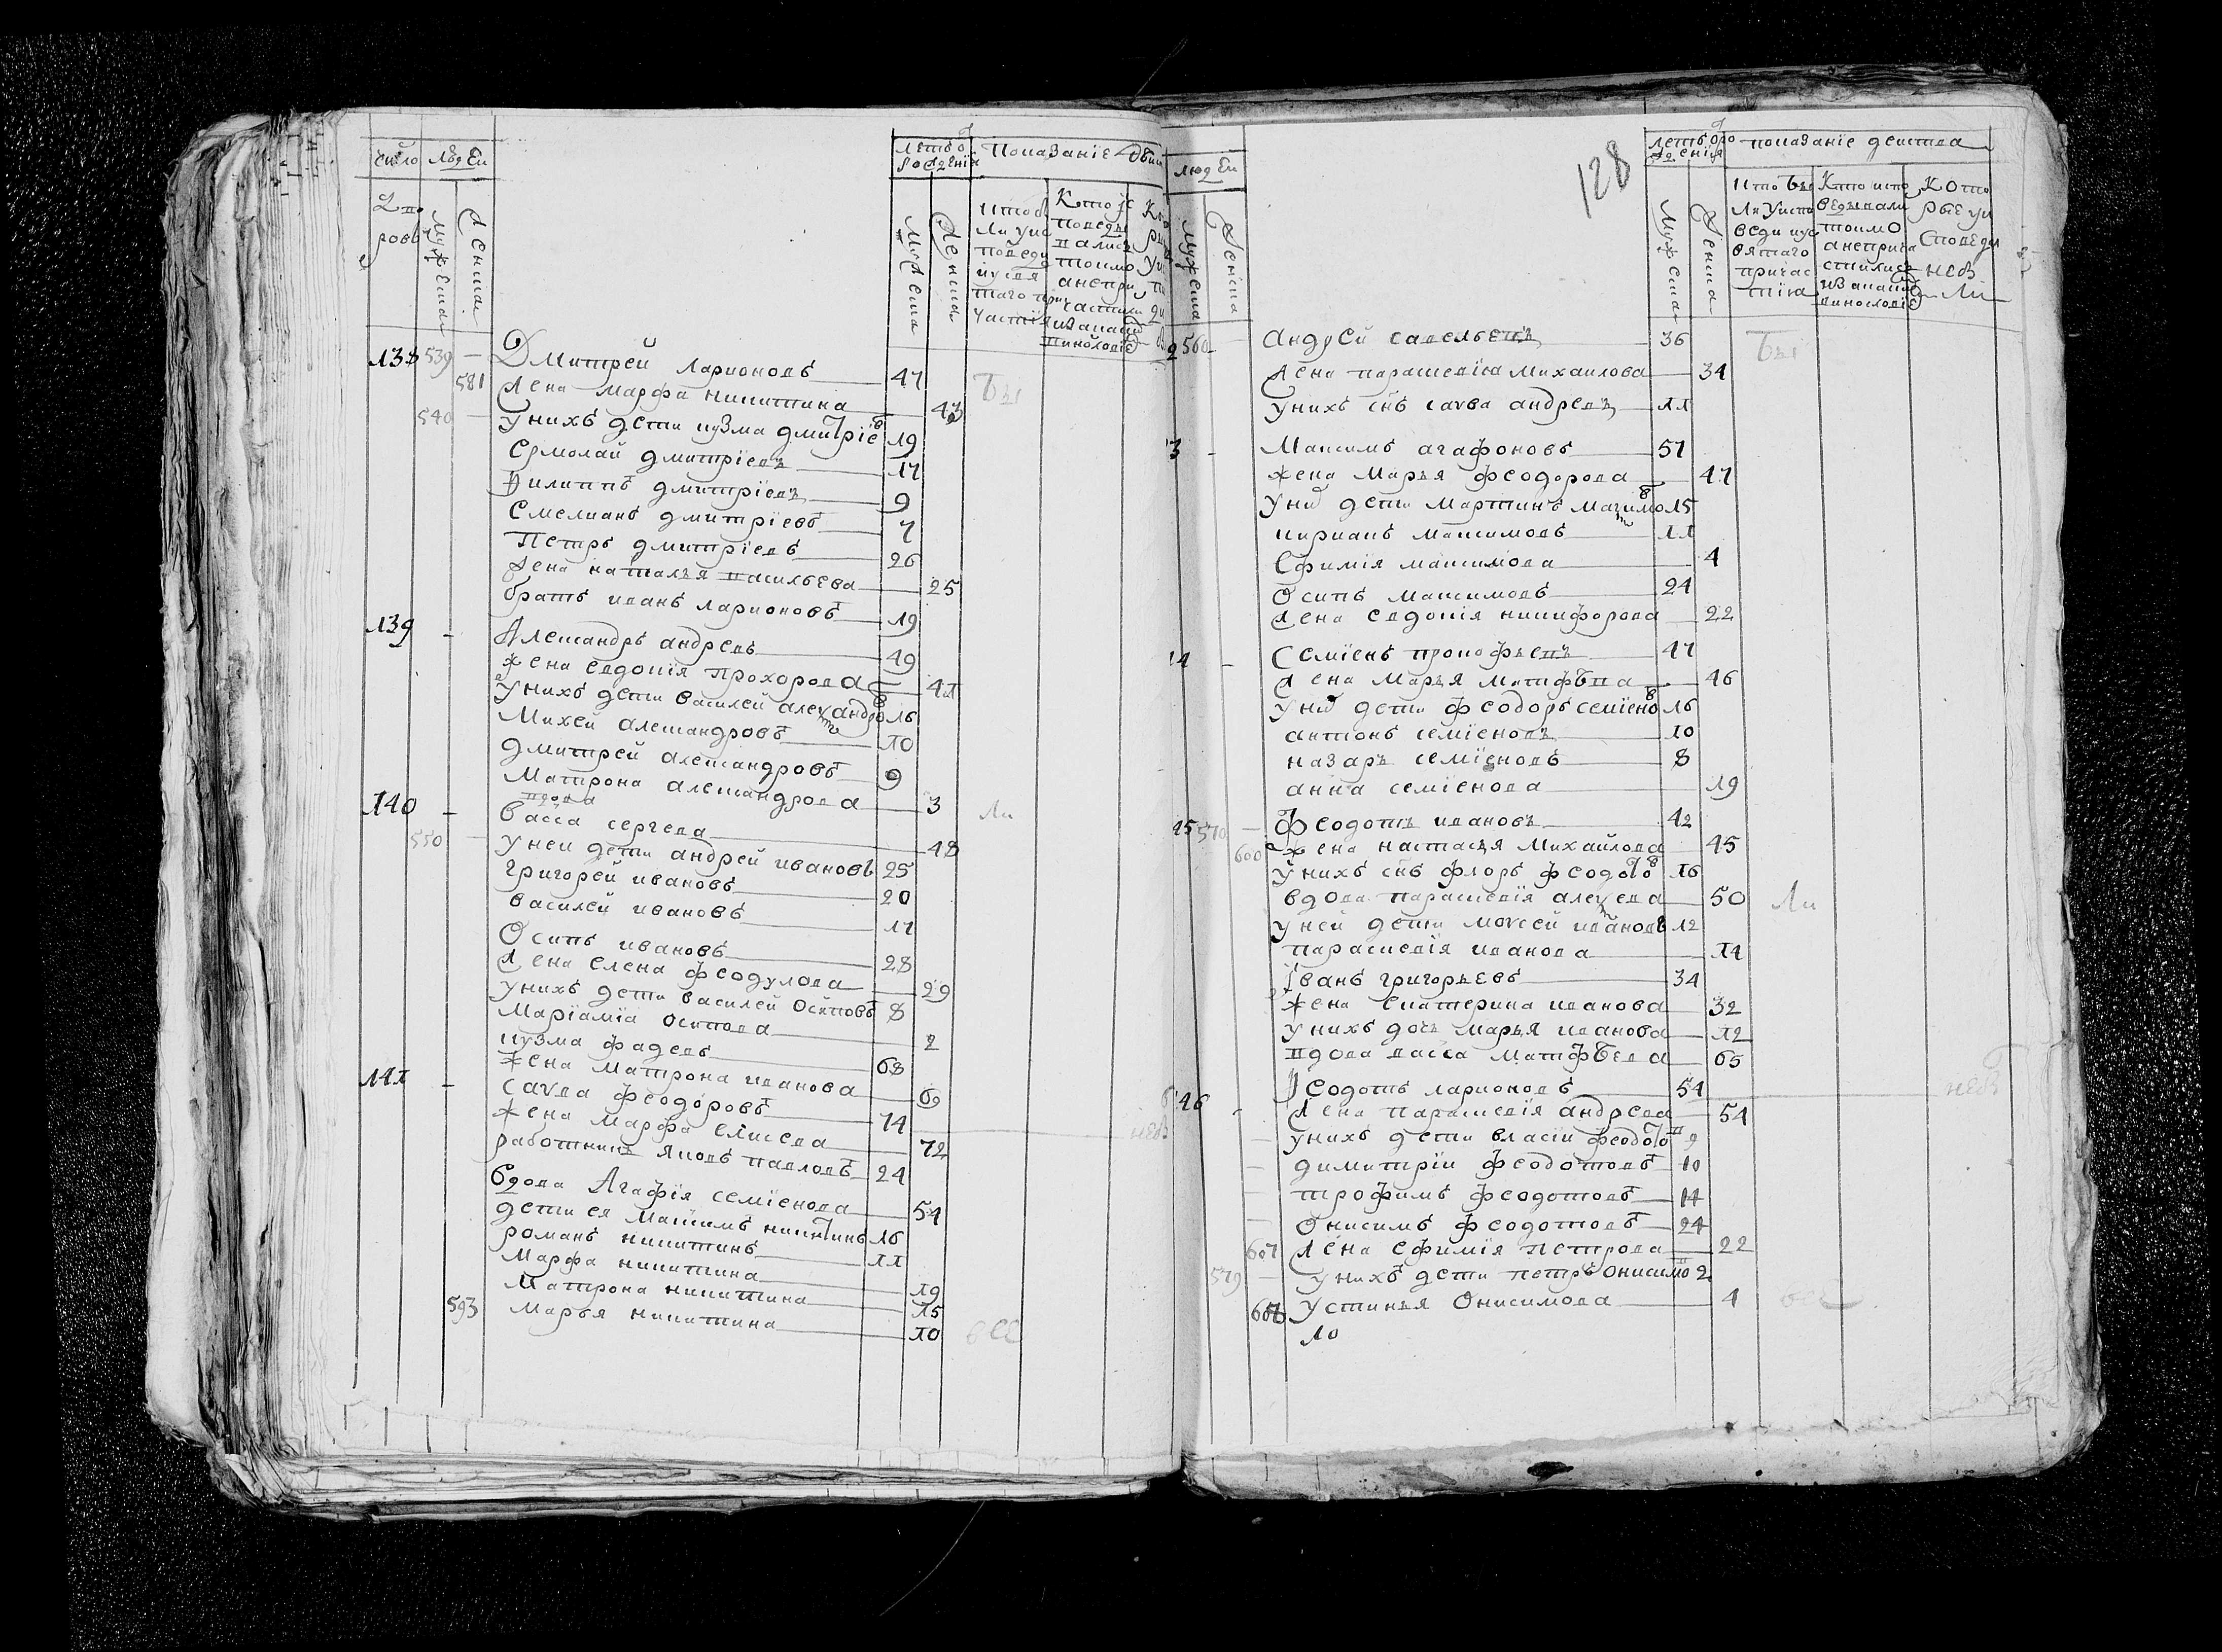 число людей
летъ о рожденiя
показанiе
дворовъ
мужеска
женска
мужеска
женска
138 539 — Дмитрей Ларионовъ 47 бы
581 жена марфа никитина 43
540 — у нихъ дети кузма дмитрiевъ 19
Ермолай дмитрiевъ 17
Филиппъ дмитрiевъ 9
Емелианъ дмитрiевъ 7
Петръ дмитрiевъ 26
жена наталья васильева 25
братъ иванъ ларионовъ 19
139 — Александръ андреевъ 49
жена евдокiя прохорова 41
у нихъ дети василей александровъ 16
Михей александровъ 10
дмитрей александровъ 9
Матрона александрова 3 ли
140 — вдова Васса сергеева 48
550 — у ней дети андрей ивановъ 25
григорей ивановъ 20
василей ивановъ 17
Осипъ ивановъ 28
жена елена феодулова 29
у нихъ дети василей осиповъ 8
Марiамiа осипова 2
кузма фадеевъ 68
жена матрона иванова 69
141 — савва феодоровъ 74
жена марфа елисеева 72
работникъ яковъ павловъ 24
вдова Агафiя семiенова 54
дети ея максимъ никитинъ 16
романъ никитинъ 11
марфа никитина 19
матрона никитина 15
593 марья никитина 10 все
128
людей
летъ о рожденiя
показанiе действа
мужеска
женска
мужеска
женска
что были у исповеди и святаго причастiя
кто исповедывался токмо а не причастился и за какимъ винословiемъ
которые у исповеди не были
2 560 — андрей савельевъ 36 бы
жена параскевiа михаилова 34
у нихъ снъ савва андреевъ 11
3 — Максимъ агафоновъ 51
жена марья феодорова 47
у них дети мартинъ максимовъ 15
кирианъ максимовъ 11
ефимiя максимова 4
Осипъ максимовъ 24
жена евдокiя никифорова 22
14 — семiенъ прокофьевъ 47
жена марья матфѣева 46
у них дети феодоръ семiеновъ 16
антонъ семiеновъ 10
назаръ семiеновъ 8
анна семiенова 19
45 570 — феодотъ ивановъ 42
600 жена настасья михайлова 45
у нихъ снъ флоръ феодотовъ 16
вдова параскевiя алексеева 50 ли
у ней дети моисей ивановъ 12
параскевiя иванова 14
Iванъ григорьевъ 34
жена екатерина иванова 32
у нихъ дочь марья иванова 12
вдова васса матфѣева 65
146 — Феодотъ ларионовъ 54
жена параскевiя андреева 54
— у нихъ дети власiи феодотовъ 9
— димитрiи феодотовъ 10
— трофимъ феодотовъ 14
— Онисимъ феодотовъ 24
607 жена ефимiя петрова 22
579 — у нихъ дети петръ онисимовъ 2
608 устинья онисимова 4 все
10